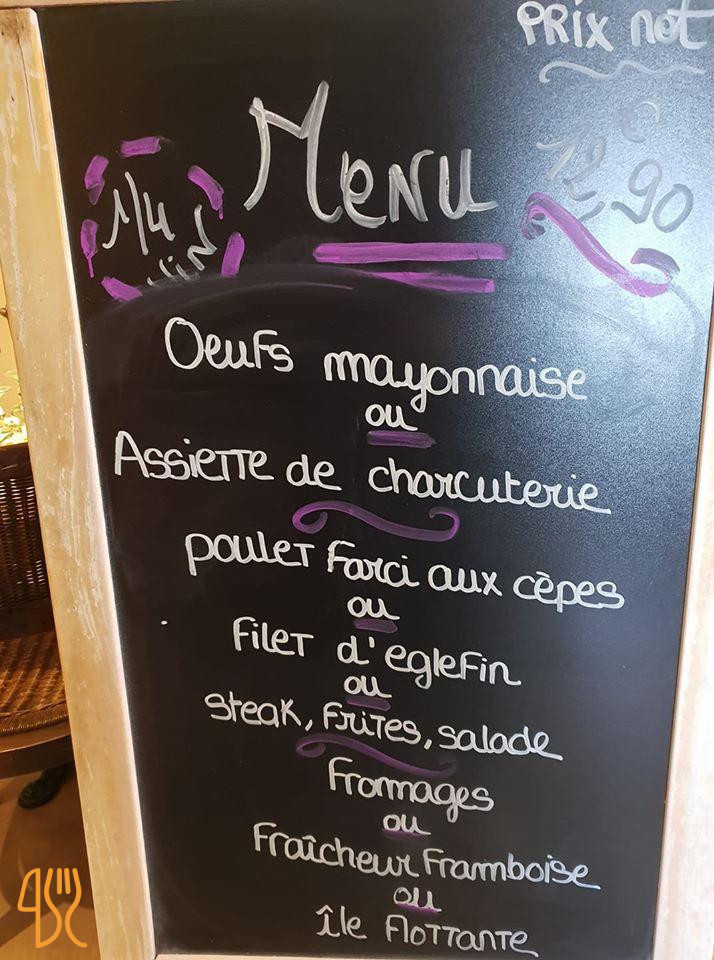 PRIX net
Menu
12,90 €
1/4
vin
Oeufs mayonnaise
ou
Assiette de charcuterie
poulet Farci aux cèpes
ou
Filet d'eglefin
ou
steak, Frites, salade
Fromages
ou
Fraîcheur Framboise
ou
île Flottante